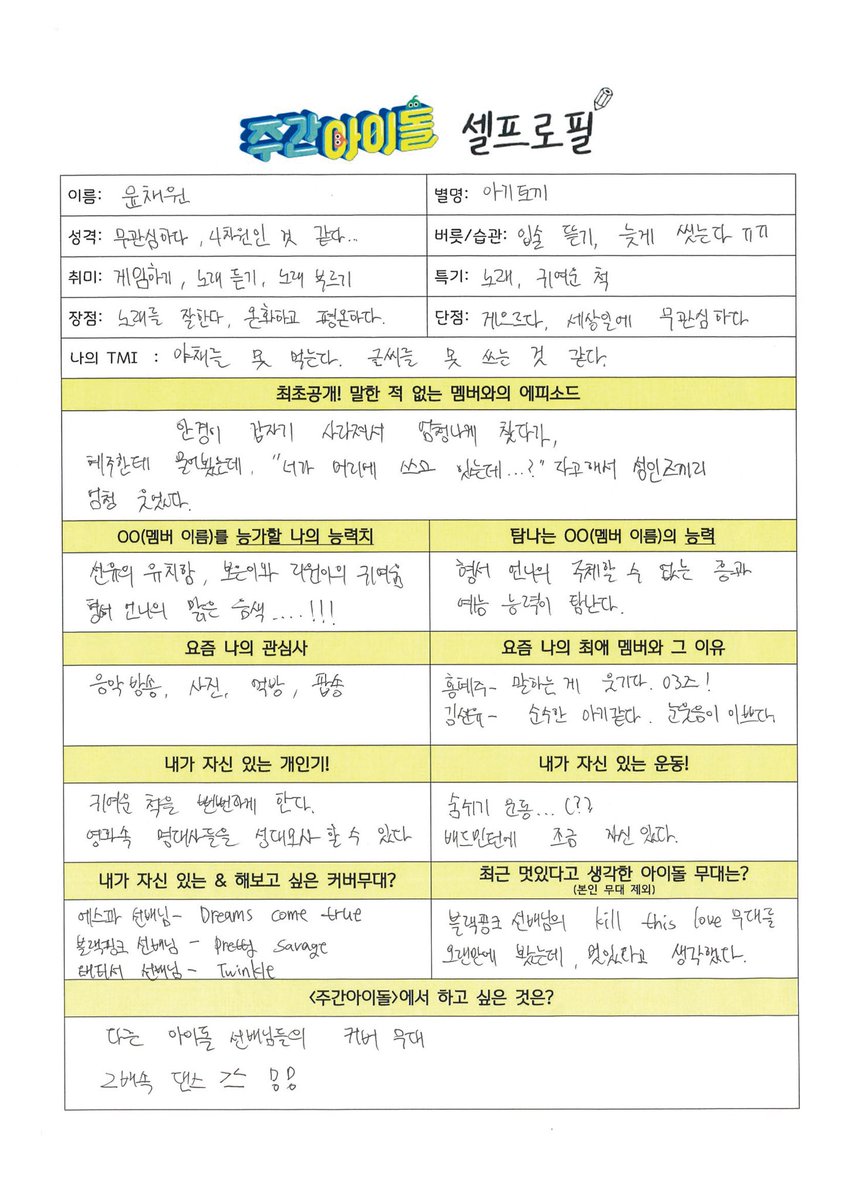 주간아이돌 셀프로필
이름: 윤채원
별명: 아기토끼
성격: 무관심하다, 4차원인 것 같다..
버릇/습관: 입술 뜯기, 늦게 씻는다 ㅠㅠ
취미: 게임하기, 노래 듣기, 노래 부르기
특기: 노래, 귀여운 척
장점: 노래를 잘한다, 온화하고 평온하다.
단점: 게으르다, 세상일에 무관심하다
나의 TMI : 야채를 못 먹는다. 글씨를 못 쓰는 것 같다.
최초공개! 말한 적 없는 멤버와의 에피소드
안경이 갑자기 사라져서 엄청나게 찾다가,
혜주한테 물어봤는데, "너가 머리에 쓰고 있는데...?" 라고해서
엄청 웃었다.
OO(멤버 이름)를 능가할 나의 능력치
탐나는 OO(멤버 이름)의 능력
선유의 유치함, 보은이와 리원이의 귀여움
형서 언니의 맑은 음색....!!!
형서 언니의 주체할 수 없는 흥과
예능 능력이 탐난다.
요즘 나의 관심사
요즘 나의 최애 멤버와 그 이유
음악방송, 사진, 먹방, 팝송
홍혜주- 말하는 게 웃기다. 03즈!
김선유- 순수한 아기같다. 눈웃음이 이쁘다
내가 자신 있는 개인기!
내가 자신 있는 운동!
귀여운 척을 뻔뻔하게 한다.
영화속 명대사들을 성대모사 할 수 있다
숨쉬기 운동... (??
배드민턴에 조금 자신있다.
내가 자신 있는 & 해보고 싶은 커버무대?
최근 멋있다고 생각한 아이돌 무대는?
(본인 무대 제외)
에스파 선배님- Dreams come true
블랙핑크 선배님 - Pretty Savage
태티서 선배님- Twinkle
블랙핑크 선배님의 kill this love 무대를
오랜만에 봤는데, 멋있다고 생각했다.
<주간아이돌>에서 하고 싶은 것은?
다른 아이돌 선배님들의 커버 무대
2배속 댄스